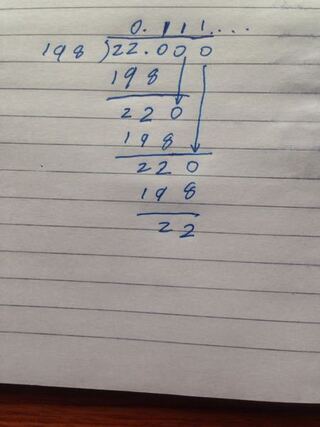 0.111...
198)22.000
198
220
198
220
198
22